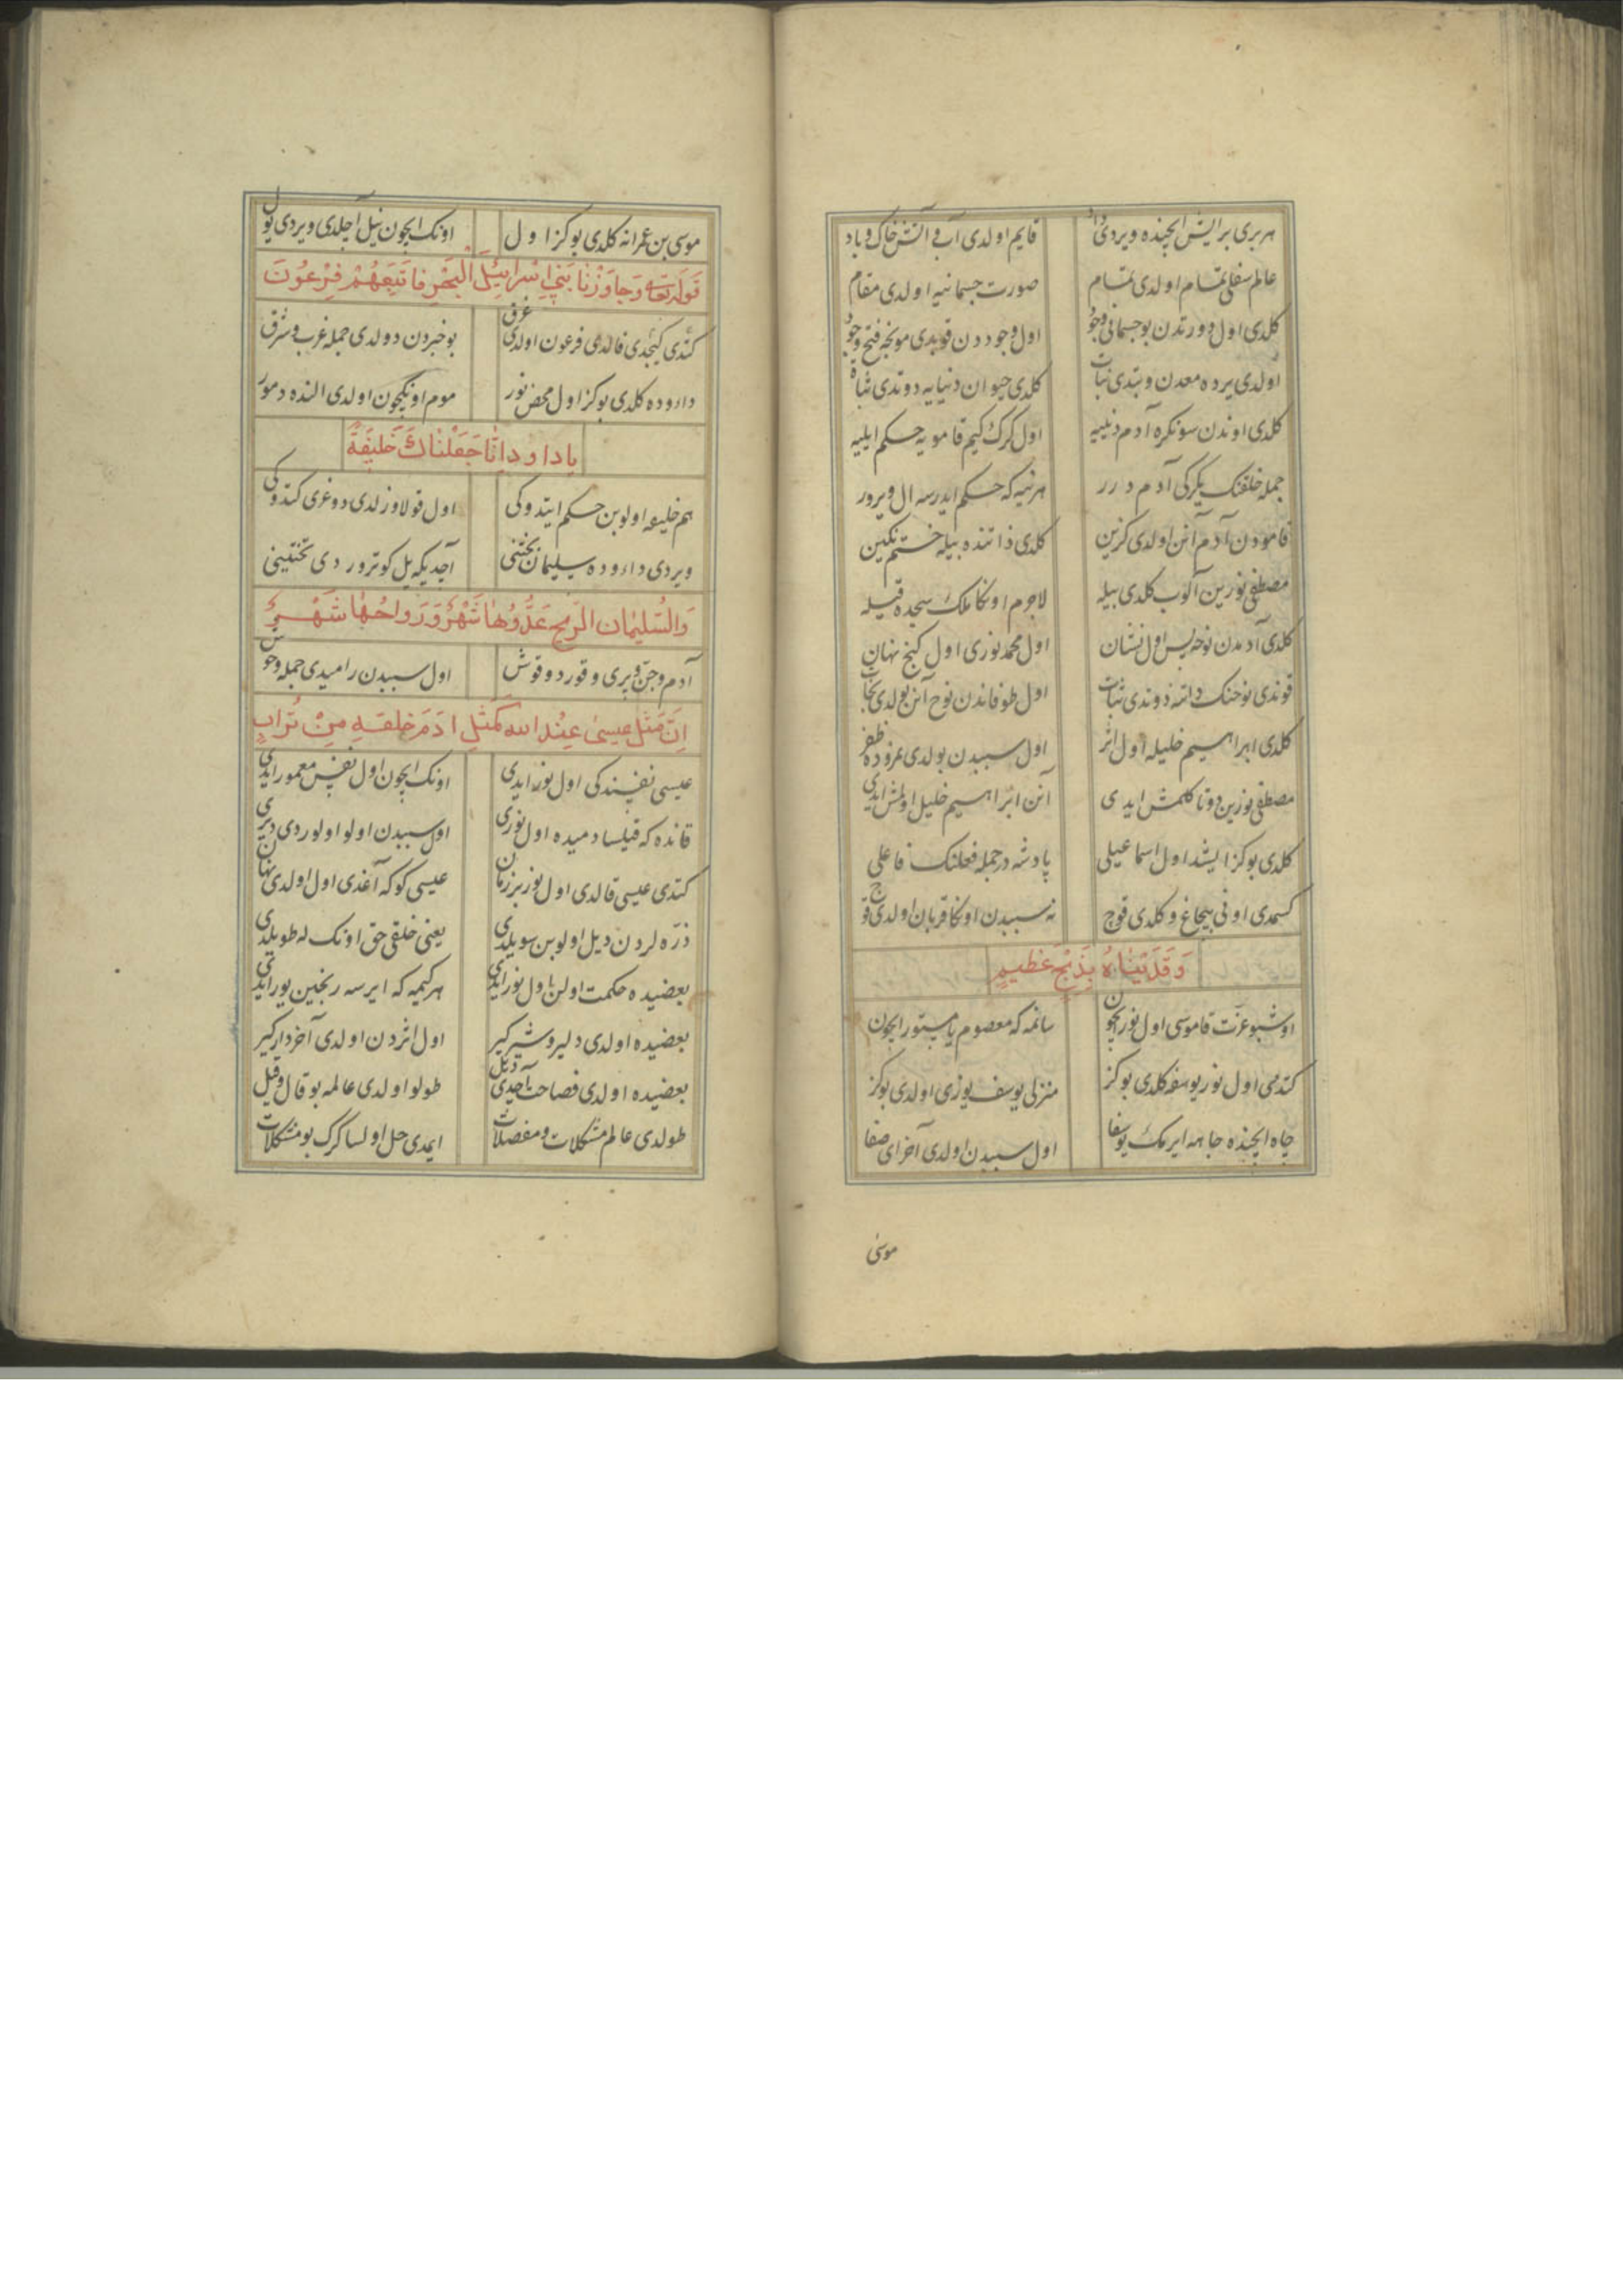 هر بری بر ایش ایچنده ویردی داد قایم اولدی آب و آتش خاک و باد
عالم سفلی تمام اولدی تمام صورت جسمانیه اولدی مقام
کلدی اول دورتدن بو جسمانی وجود اول وجوددن قوپدی مونجه فتح وجود
اولدی یرده معدن و بتدی نبات کلدی حیوان دنیایه دوتدی ثبات
کلدی اوندن سونکره آدم دنییه اول کرک کیم قامویه حکم ایلیه
جمله خلقنک یکرکی آدم درر هر نیه که حکم ایدرسه ال ویرور
قامودن آدم آنن اولدی کزین کلدی ذاتنده بیله ختم نکین
مصطفی نورین آلوب کلدی بیله لاجرم اونکا ملک سجده قیله
کلدی آدمدن نوحه پس اول نشان اول محمد نوری اول کنج نهان
قوندی نوحنک ذاتنه دوندی نبات اول طوفاندن نوح آنن بولدی نجات
کلدی ابراهیم خلیله اول اثر اول سببدن بولدی نمروده ظفر
مصطفی نورین دوتا کلمش ایدی آنن ابراهیم خلیل اولمش ایدی
کلدی بوکز ایشد اول اسماعیلی پادشه در جمله فعلنک فاعلی
کسمدی اونی بیچاغ و کلدی قوچ نه سببدن اونکا قربان اولدی قوچ
وَفَدَیْنَاهُ بِذَبْحٍ عَظِیمٍ
اوشبو عزت قاموسی اول نور ایچون سانمه که معصوم یا مستور ایچون
کتدی اول نور یوسفه کلدی بوکز منزلی یوسف یوزی اولدی بوکز
چاه ایچنده جاهه ایرمک یوسفا اول سببدن اولدی آخر ای صفا
موسی
موسی بن عمرانه کلدی بوکز اول اونک ایچون نیل آچلدی ویردی یول
قوله تعالی وَجَاوَزْنَا بَنِی اِسْرَائِیلَ الْبَحْرَ فَاَتْبَعَهُمْ فِرْعَوْنَ
کندی کیچدی قالدی فرعون اولدی غرق بو خبردن دولدی جمله غرب و شرق
داوده کلدی بوکز اول محض نور موم اونیکچون اولدی النده دمور
یا داود اِنَّا جَعَلْنَاكَ خَلیفَةً
هم خلیفه اولوبن حکم ایتدوکی اول قولاوزلدی دوغری کتدوکی
ویردی داوده سلیمان بختنی آجدیکه یل کوترور دی تختینی
وَالسُّلَیْمَان الرّیحَ غدُوُّهَا شَهْرٌ وَرَوَاحُهَا شَهْرٌ
آدم و جن و پری و قورد و قوش اول سببدن رامیدی جمله وحوش
اِنَّ مَثَلَ عیسٰی عِنْدَ الله کَمَثَلِ ادَمَ خلقه مِنْ تُرَابٍ
عیسی نفسندکی اول نور ایدی اونک ایچون اول نفس معمور ایدی
قانده که قیلسا دمیده اول نوری اول سببدن اولو اولوردی دیری
کتدی عیسی قالدی اول نور بر زمان عیسی کوکه آغدی اول اولدی نهان
ذره لردن دیل اولوبن سویلدی یعنی خلقی حق اونک له طویلدی
بعضیده حکمت اولن اول نور ایدی هر کیمه که ایرسه رنجین یور ایدی
بعضیده اولدی دلیر و شیر کیر اول اثردن اولدی آخر دار کیر
بعضیده اولدی فصاحت آچدی دیل طولو اولدی عالمه بو قال و قیل
طولدی عالم مشکلات و مفصلات ایمدی حل اولسا کرک بو مشکلات